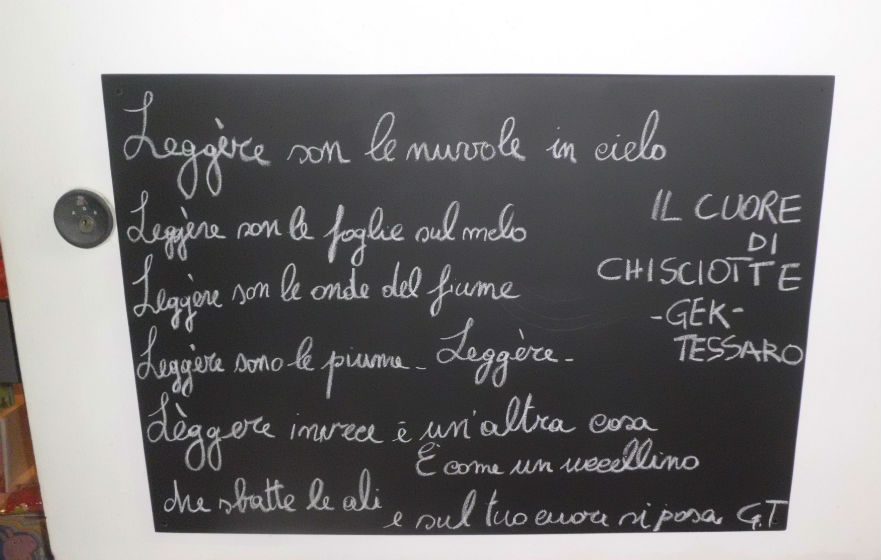 Leggère son le nuvole in cielo
Leggère son le foglie sul melo
Leggère son le onde del fiume
Leggère sono le piume - Leggère -
Lèggere invece è un'altra cosa
È come un uccellino
che sbatte le ali
e sul tuo cuore si posa G.T
IL CUORE
DI
CHISCIOTTE
-GEK-
TESSARO